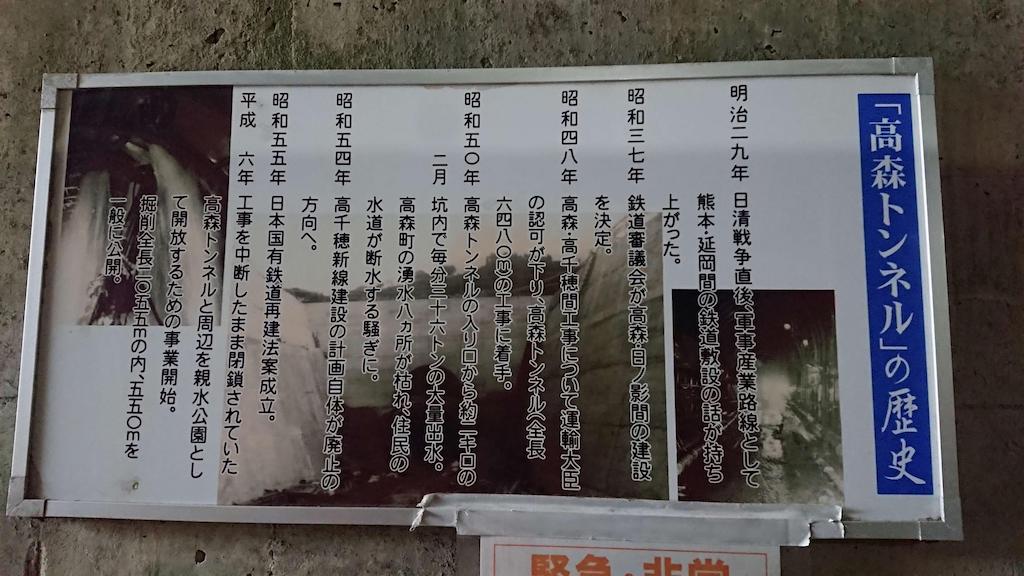 「高森トンネル」の歴史
明治二九年 日清戦争直後、軍事産業路線として
熊本・延岡間の鉄道敷設の話が持ち
上がった。
昭和三七年 鉄道審議会が高森・日ノ影間の建設
を決定。
昭和四八年 高森・高千穂間工事について運輸大臣
の認可が下り、高森トンネル(全長
六四八〇m)の工事に着手。
昭和五〇年 高森トンネルの入り口から約二キロの
二月 坑内で毎分三十六トンの大量出水。
高森町の湧水八ヵ所が枯れ、住民の
水道が断水する騒ぎに。
昭和五四年 高千穂新線建設の計画自体が廃止の
方向へ。
昭和五五年 日本国有鉄道再建法案成立。
平成 六年 工事を中断したまま閉鎖されていた
高森トンネルと周辺を親水公園とし
て開放するための事業開始。
掘削全長二〇五五mの内、五五〇mを
一般に公開。
緊急・非常